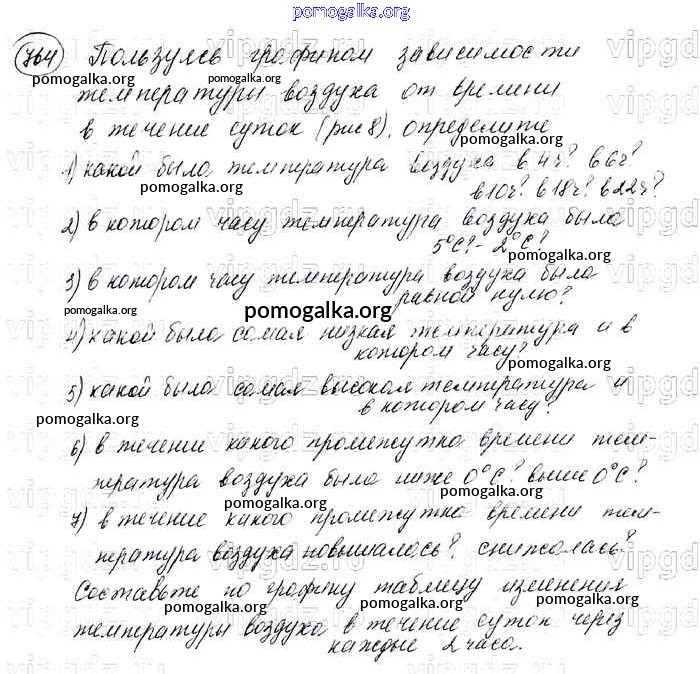 pomogalka.org
764 Пользуясь графиком зависимости
pomogalka.org pomogalka.org
температуры воздуха от времени
в течение суток (рис 8), определите
pomogalka.org
1) какой была температура воздуха в 4ч? в 6ч?
pomogalka.org
в 10ч? в 18ч? в 22ч?
2) в котором часу температура воздуха была
5°C? - 2°C?
pomogalka.org
3) в котором часу температура воздуха была
равной нулю?
pomogalka.org pomogalka.org
4) какой была самая низкая температура и в
котором часу?
pomogalka.org
5) какой была самая высокая температура и
в котором часу?
pomogalka.org pomogalka.org
6) в течение какого промежутка времени тем-
пература воздуха была ниже 0°C? выше 0°C?
pomogalka.org pomogalka.org
7) в течение какого промежутка времени тем-
пература воздуха повышалось? снижалась?
pomogalka.org
Составьте по графику таблицу изменения
pomogalka.org pomogalka.org pomogalka.org
температуры воздуха в течение суток через
каждые 2 часа.
pomogalka.org
vipgdz.ru